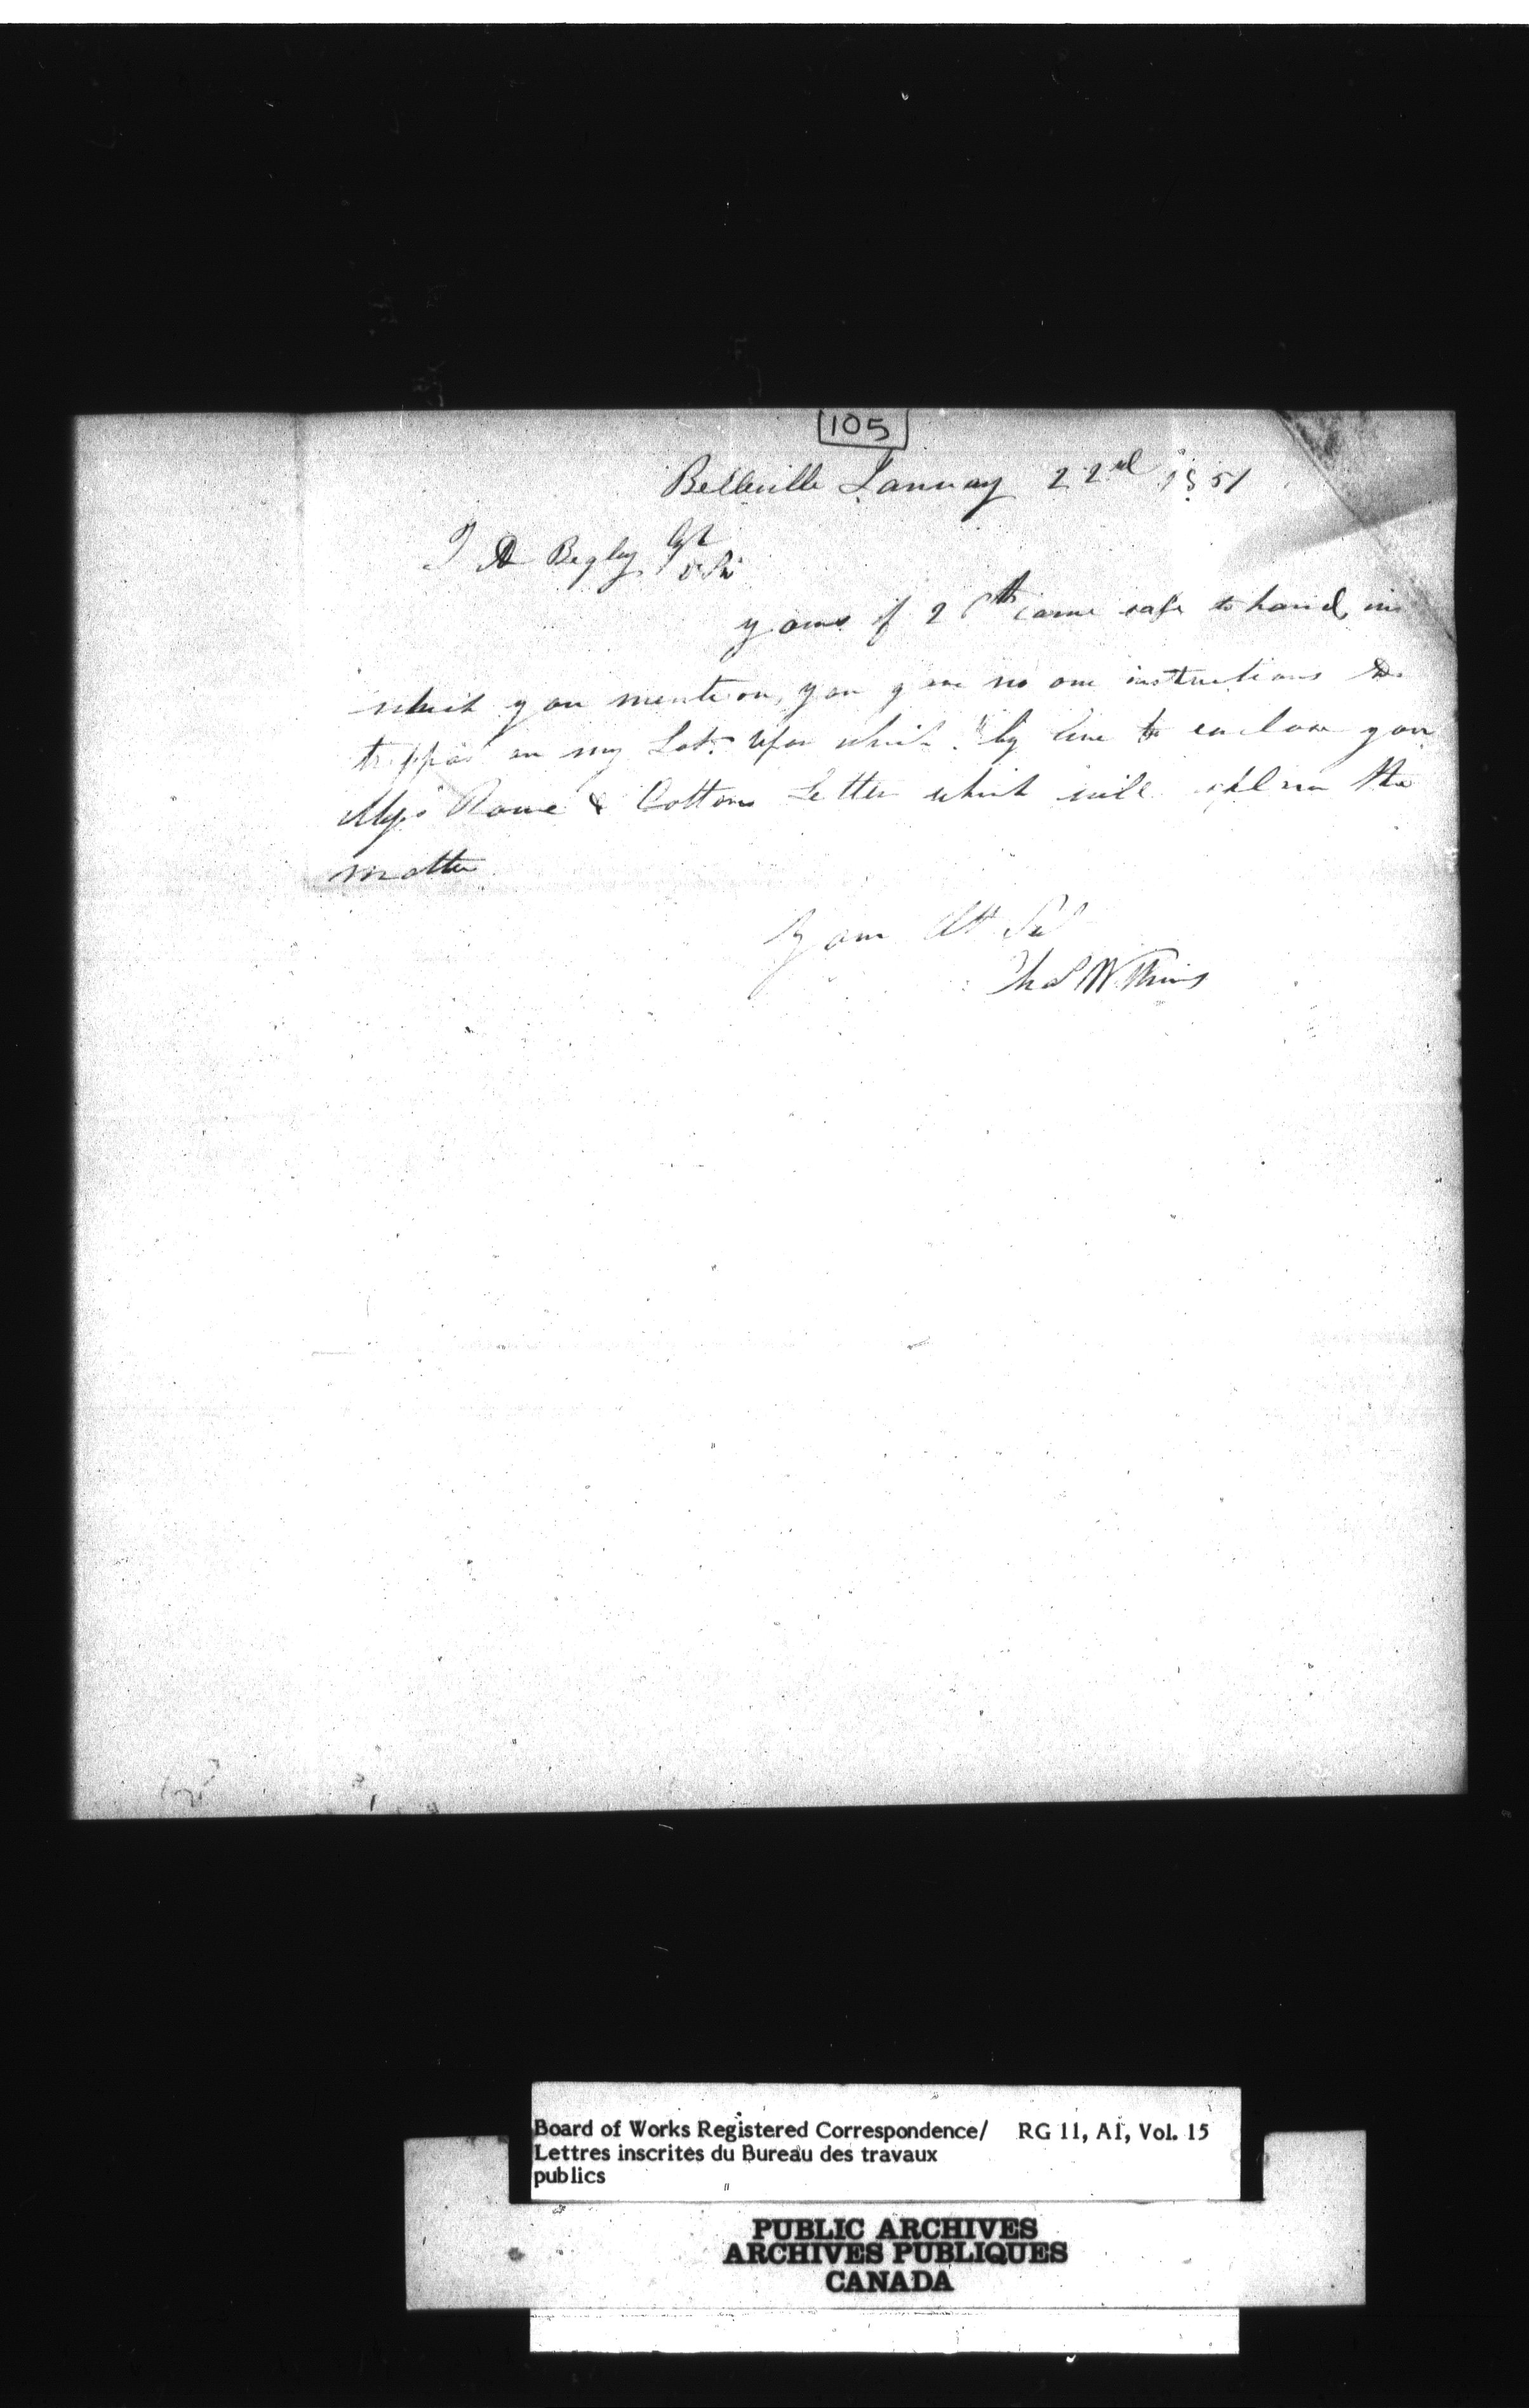 105
Belleville January 22nd 1851
T A Begly Esqr
D Sir
yours of 20th came safe to hand, in
which you mention, you gave no one instructions to
trespass on my Lot. Upon which I beg leave to enclose you
Messrs Rowe & Cottons Letter which will explain the
matter
Your Obt Svt
Board of Works Registered Correspondence/ RG 11, A1, Vol. 15
Lettres inscrites du Bureau des travaux
publics
PUBLIC ARCHIVES
ARCHIVES PUBLIQUES
CANADA